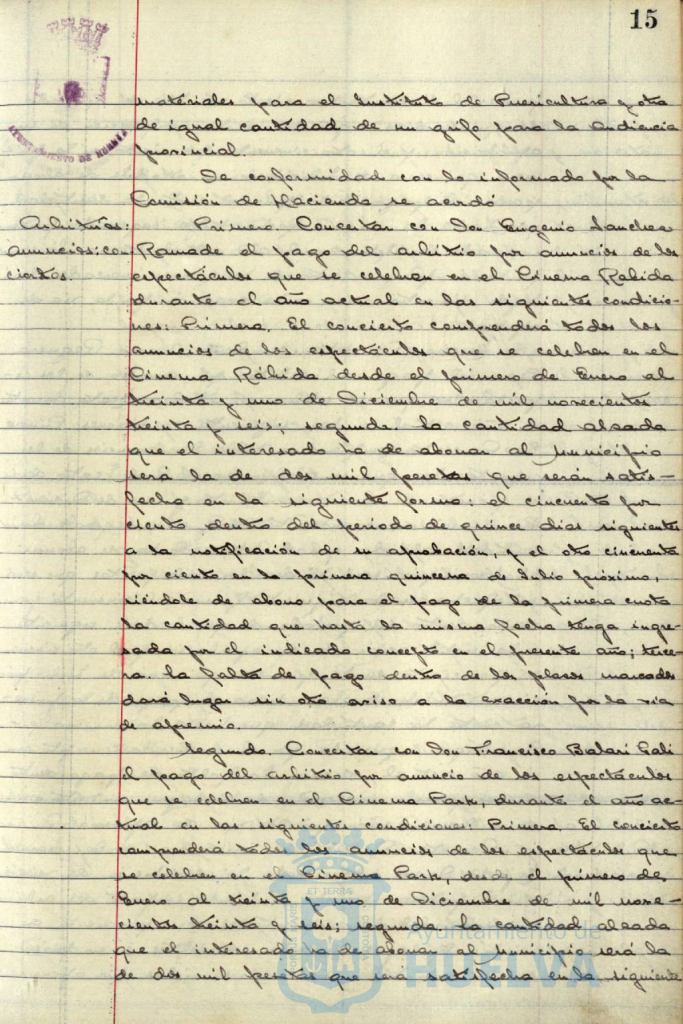 15
AYUNTAMIENTO DE HUELVA
materiales para el Instituto de Puericultura y otra
de igual cantidad de un grifo para la Audiencia
provincial.
De conformidad con lo informado por la
Comisión de Hacienda se acordó
Arbitrios:
anuncios: con
ciertos.
Primero. Concertar con Don Eugenio Sanchez
Ramade el pago del arbitrio por anuncios de los
espectáculos que se celebren en el Cinema Rabida
durante el año actual en las siguientes condicio-
nes: Primera. El concierto comprenderá todos los
anuncios de los espectáculos que se celebren en el
Cinema Rábida desde el primero de Enero al
treinta y uno de Diciembre de mil novecientos
treinta y seis; segunda. La cantidad alzada
que el interesado ha de abonar al Municipio
será la de dos mil pesetas que serán satis-
fecha en la siguiente forma: el cincuenta por
ciento dentro del periodo de quince dias siguientes
a la notificación de su aprobación, y el otro cincuenta
por ciento en la primera quincena de Julio próximo,
siéndole de abono para el pago de la primera cuota
la cantidad que hasta la misma fecha tenga ingre-
sada por el indicado concepto en el presente año; terce-
ra. La falta de pago dentro de los plazos marcados
dará lugar sin otro aviso a la exacción por la via
de apremio.
Segundo. Concertar con Don Francisco Balari Galí
el pago del arbitrio por anuncio de los espectáculos
que se celebren en el Cinema Park, durante el año ac-
tual en las siguientes condiciones: Primera. El concierto
comprenderá todos los anuncios de los espectáculos que
se celebren en el Cinema Park, desde el primero de
Enero al treinta y uno de Diciembre de mil nove-
cientos treinta y seis; segunda. La cantidad alzada
que el interesado ha de abonar al Municipio será la
de dos mil pesetas que será satisfecha en la siguiente
ET TERRA
Ayuntamiento de
HUELVA